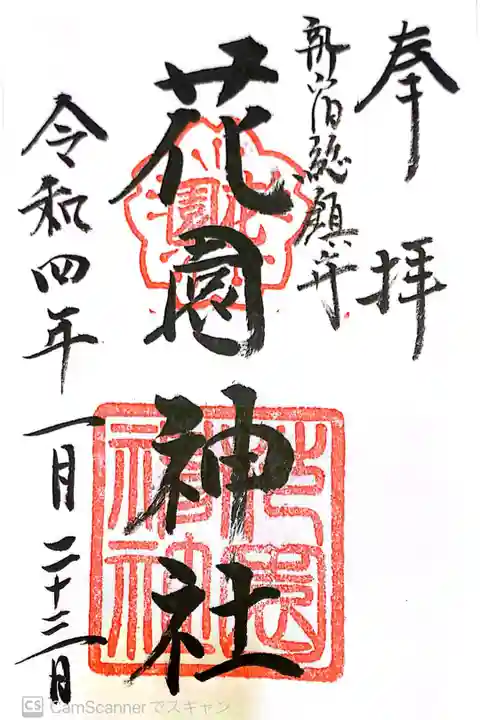 奉拝
新宿総鎮守
花園神社
令和四年一月二十三日
花園
CS CamScannerでスキャン